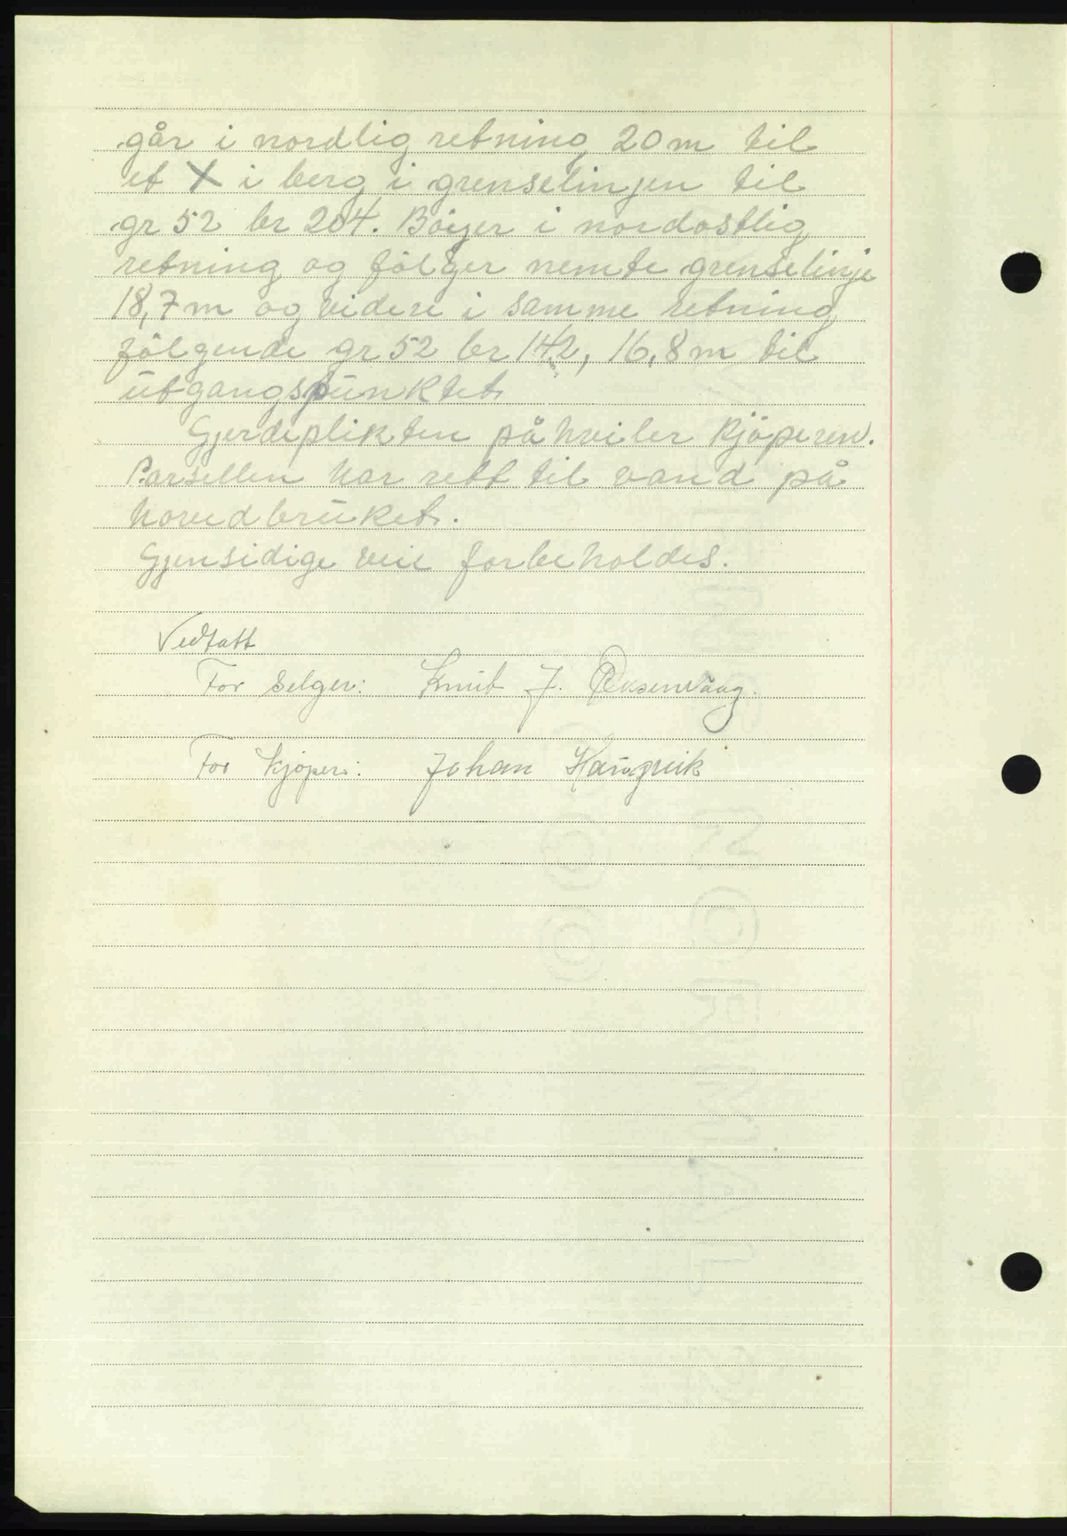 går i nordlig retning 20 m til
et X i berg i grenselinjen til
gr 52 br 204. Böyer i nordostlig
retning og fölger nemte grenselinje
18,7 m og videre i samme retning
fölgende gr 52 br 142, 16,8 m til
utgangspunktet
Gjerdeplikten påhviler Kjöperen.
Parsellen har rett til vand på
hovedbruket.
Gjensidige veie forbeholdes.
Vedtatt
For Selger: Knut J. Øksenvåag.
For Kjöper: Johan